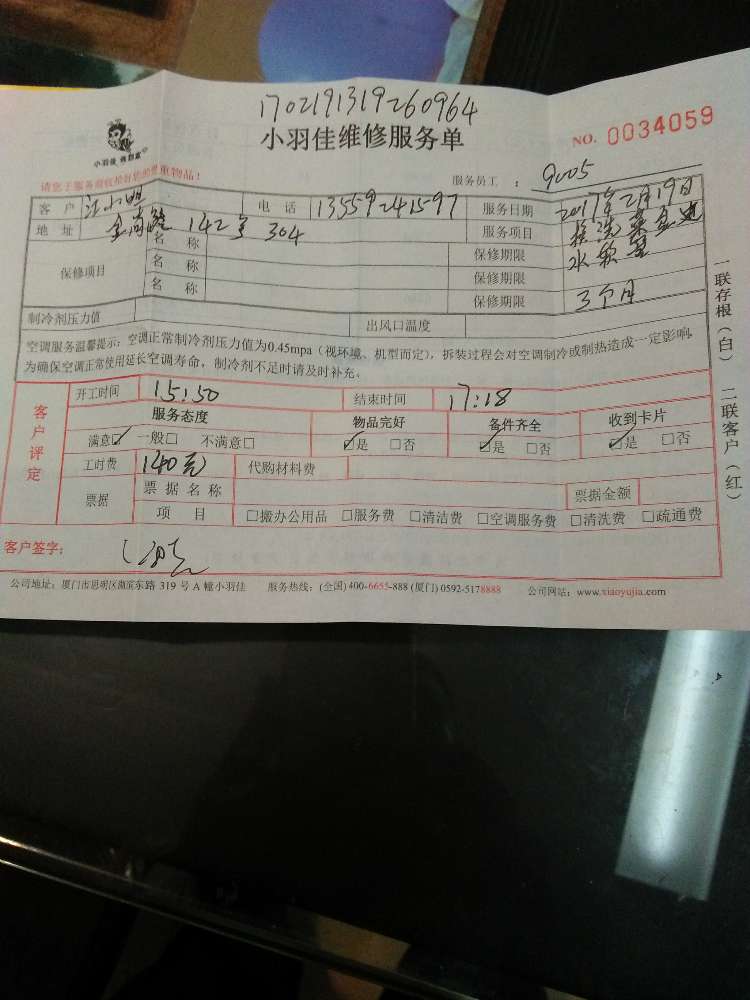 1702191319260964
小羽佳维修服务单
NO. 0034059
小羽佳
请您于服务前收拾好您的贵重物品！
服务员工：9005
客户 汪小姐 电话 13559241597 服务日期 2017年2月19日
地址 金尚路142号304 服务项目 换洗菜盆进水软管
保修项目 名称 保修期限
名称 保修期限
名称 保修期限 3个月
制冷剂压力值 出风口温度
空调服务温馨提示：空调正常制冷剂压力值为0.45mpa（视环境、机型而定），拆装过程会对空调制冷或制热造成一定影响，
为确保空调正常使用延长空调寿命，制冷剂不足时请及时补充。
客户评定
开工时间 15:50 结束时间 17:18
服务态度 物品完好 备件齐全 收到卡片
满意☑ 一般□ 不满意□ ☑是 □否 ☑是 □否 ☑是 □否
工时费 140元 代购材料费
票据 票据名称 票据金额
项目 □搬办公用品 □服务费 □清洁费 □空调服务费 □清洗费 □疏通费
客户签字：
公司地址：厦门市思明区湖滨东路 319 号 A 幢小羽佳 服务热线：(全国) 400-6655-888 (厦门) 0592-5178888 公司网站：www.xiaoyujia.com
一联存根（白） 二联客户（红）